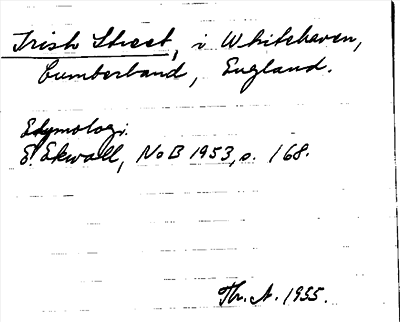 Irish Street, i Whitehaven,
Cumberland, England.
Etymologi.
E. Ekwall, NoB 1953, s. 168.
Th. A. 1955.